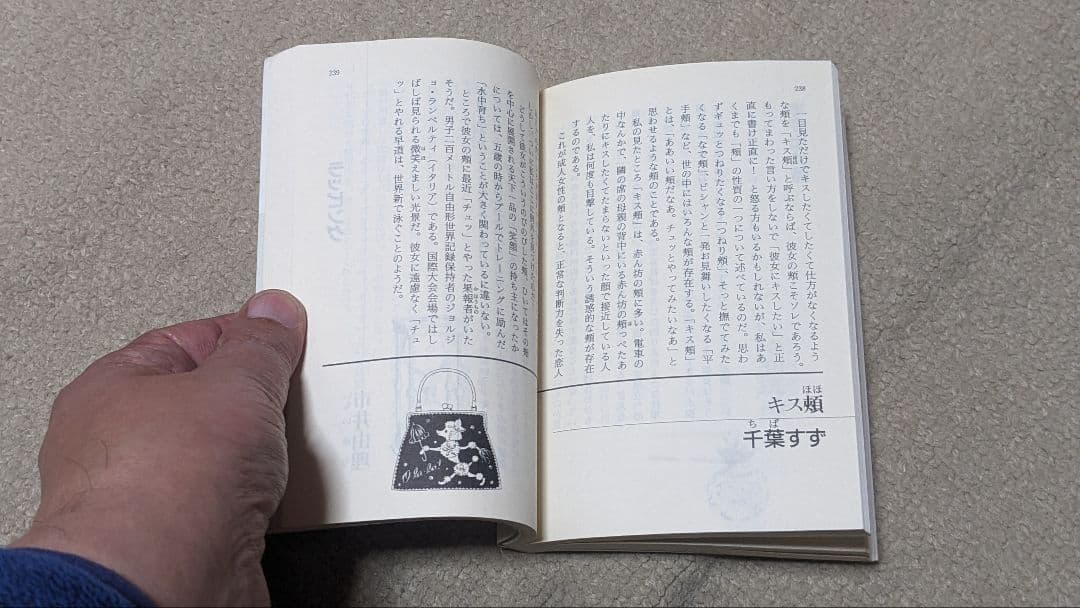 238
キス頬
ほほ
千葉すず
ちば
一目見ただけでキスしたくてしたくて仕方がなくなるよう
な頬を「キス頬」と呼ぶならば、彼女の頬こそソレであろう。
ほほ
もってまわった言い方をしないで「彼女にキスしたい」と正
直に書け正直に! と怒る方もいるかもしれないが、私はあ
くまでも「頬」の性質の一つについて述べているのだ。思わ
ずギュッとつねりたくなる「つねり頬」、そっと撫でてみた
くなる「なで頬」、ピシャンと一発お見舞いしたくなる「平
手頬」など、世の中にはいろんな頬が存在する。「キス頬」
とは、「ああいい頬だなあ。チュッとやってみたいなあ」と
思わせるような頬のことである。
私の見たところ「キス頬」は、赤ん坊の頬に多い。電車の
中なんかで、隣の席の母親の背中にいる赤ん坊の頬っぺたあ
たりにキスしたくてたまらないといった顔で接近している大
人を、私は何度も目撃している。そういう誘惑的な頬が存在
するのである。
これが成人女性の頬となると、正常な判断力を失った恋人
239
どうして彼女がこういうのびのびした頬、ひいてはその頬
を中心に展開される天下一品の「笑顔」の持ち主になったか
については、五歳の時からプールでトレーニングに励んだ
「水中育ち」ということが大きく関わっているに違いない。
ところで彼女の頬に最近「チュッ」とやった果報者がいた
かほうもの
そうだ。男子二百メートル自由形世界記録保持者のジョルジ
ョ・ランベルティ(イタリア)である。国際大会会場ではし
ばしば見られる微笑ましい光景だ。彼女に遠慮なく「チュ
ほほえ
ッ」とやれる早道は、世界新で泳ぐことのようだ。